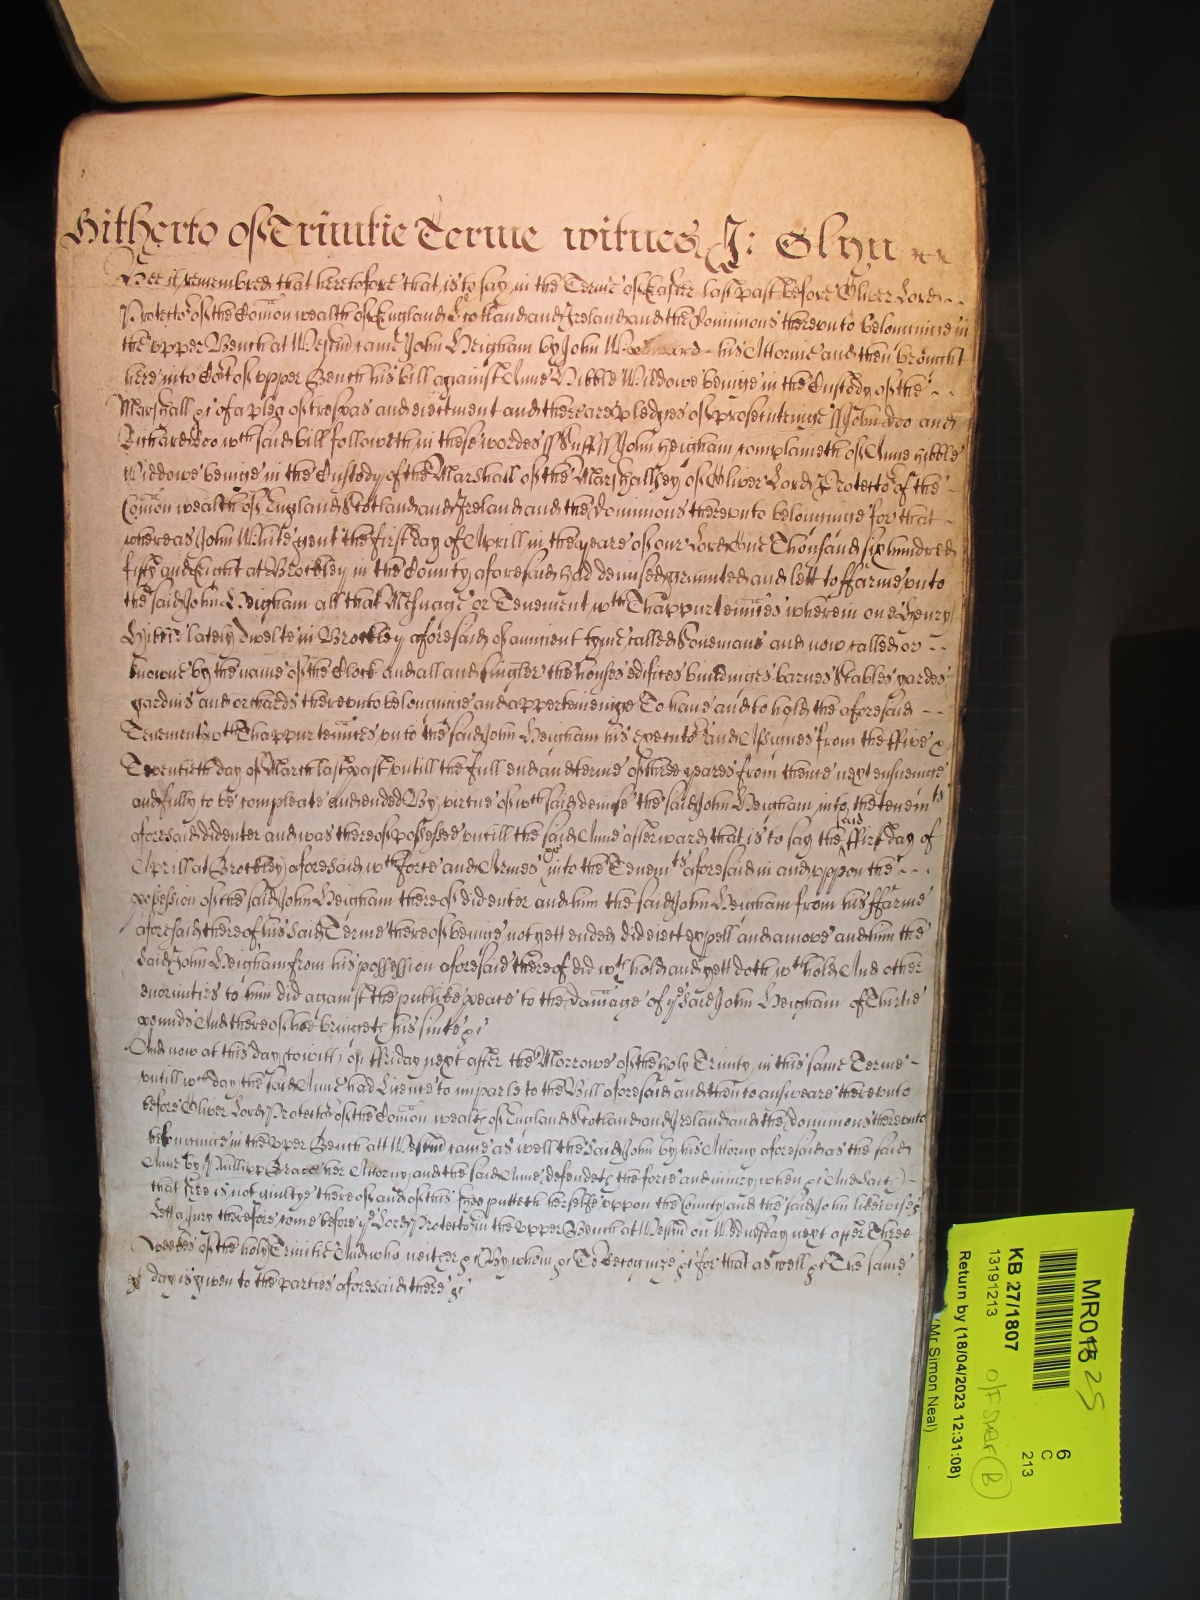 Hitherto of Trinitie Terme witnes J: Glyn
Bee it remembred that heretofore that is to say in the Terme of Easter last past before Oliver Lord
Protector of the Comon wealth of England Scotland and Ireland and the Dominions thereunto belonginge in
the upper Bench at Westm came John Heigham by John Woodward his Attornie and then brought
here into Cort of upper Bench his bill against Anne Hibble Widdowe beinge in the Custody of the
Marshall &c of a plea of trespas and eiectment and there are pledges of prosecutinge John doo and
Richard Roo wch said bill followeth in these wordes ss Suff ss John Heigham complaineth of Anne Hibble
Widdowe beinge in the Custody of the Marshall of the Marshallsey of Oliver Lord Protector of the
Comon wealth of England Scotland and Ireland and the Dominions thereunto belonginge for that
whereas John White gent the first day of Aprill in the yeare of our Lord One Thousand six hundred
fifty and Eight at Brockley in the County aforesaid had demised graunted and lett to ffarme unto
the said John Heigham all that Mesuage or Tenement wth Thappurtennces wherein one Henry
lately dwelte in Brockley aforesaid of auncient tyme called Sonemans and now called or
knowne by the name of the Clock and all and singler the houses edifices buildinges barnes Stables yardes
gardins and orchards thereunto belonginge and apperteineinge To have and to hold the aforesaid
Tenements wth Thappurtennces unto the said John Heigham his executors and Assignes from the ffive &
Twentieth day of March last past untill the full end and terme of three yeares from thence next ensueinge
and fully to be compleate and ended By virtue of wch said demise the said John Heigham into the tenemts
aforesaid did enter and was thereof possessed untill the said Anne afterward that is to say the said ffirst day of
Aprill at Brockley aforesaid wth force and Armes &c into the Tenemts aforesaid in and uppon the
possession of the said John Heigham thereof did enter and him the said John Heigham from his ffarme
aforesaid thereof his said Terme thereof beinge not yett ended did eiect expell and amove and him the
said John Heigham from his possession aforesaid thereof did wth hold and yett doth wth hold And other
enormities to him did against the publike peace to the damage of ye said John Heigham of Thirtie
pounds And thereof hee bringeth his suite &c
And now at this day (to witt) on ffriday next after the Morrowe of the holy Trinity in this same Terme
untill wch day the said Anne had Licence to imparle to the Bill aforesaid and then to answeare thereunto
before Oliver Lord Protector of the Comon wealth of England Scotland and Ireland and the Dominions thereunto
belonginge in the upper Bench att Westm came as well the said John by his Attorny aforesaid as the said
Anne by Phillipp Grace her Attorny and the said Anne defendeth the force and iniury when &c And saith
that shee is not guiltye thereof and of this shee putteth herselfe uppon the County and the said John likewise &c
Lett a Jury therefore come before ye Lord Protector in the upper Bench at Westm on Wednesday next after Three
Weekes of the holy Trinitie And who neither &c By whom &c To Recognize &c for that as well &c The same
day is given to the parties aforesaid there &c
MR01
25
6
C
213
KB 27/1807
13191213
B
Return by (18/04/2023 12:31:08)
(Mr Simon Neal)